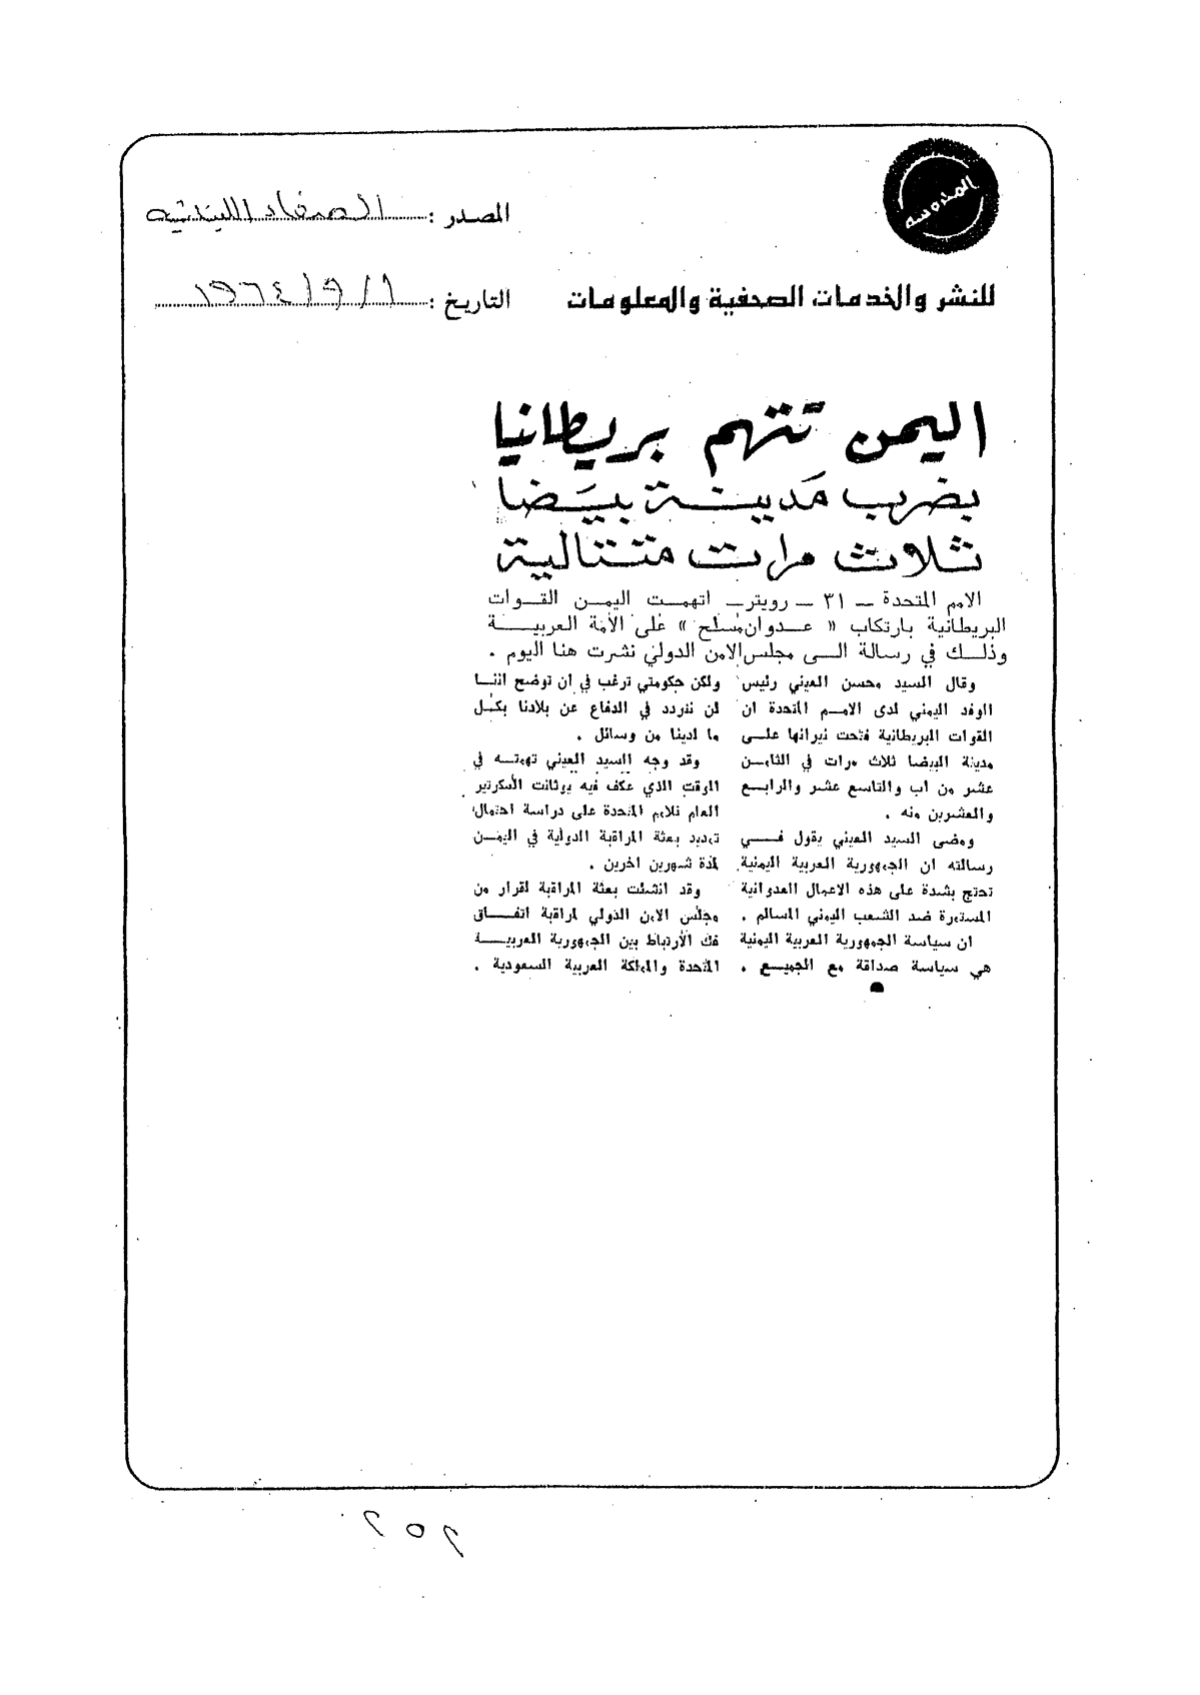 المدوسه
للنشر والخدمات الصحفية والمعلومات
المصدر : الصفاء اللبنانيه
التاريخ : ١٩٦٤/٩/١
اليمن تتهم بريطانيا
بضرب مدينة بيضا
ثلاث مرات متتالية
الامم المتحدة ــ ٣١ ــ رويتر ــ اتهمت اليمن القوات
البريطانية بارتكاب « عدوان مسلح » على الأمة العربية
وذلك في رسالة الى مجلس الامن الدولي نشرت هنا اليوم .
وقال السيد محسن العيني رئيس
الوفد اليمني لدى الامم المتحدة ان
القوات البريطانية فتحت نيرانها على
مدينة البيضا ثلاث مرات في الثامن
عشر من اب والتاسع عشر والرابع
والعشرين منه .
ومضى السيد العيني يقول في
رسالته ان الجمهورية العربية اليمنية
تحتج بشدة على هذه الاعمال العدوانية
المستمرة ضد الشعب اليمني المسالم .
ان سياسة الجمهورية العربية اليمنية
هي سياسة صداقة مع الجميع .
ولكن حكومتي ترغب في ان توضح اننا
لن نتردد في الدفاع عن بلادنا بكل
ما لدينا من وسائل .
وقد وجه السيد العيني تهمته في
الوقت الذي عكف فيه يوثانت السكرتير
العام للامم المتحدة على دراسة احتمال
تمديد بعثة المراقبة الدولية في اليمن
لمدة شهرين اخرين .
وقد انشئت بعثة المراقبة لقرار من
مجلس الامن الدولي لمراقبة اتفاق
فك الأرتباط بين الجمهورية العربية
المتحدة والمملكة العربية السعودية .